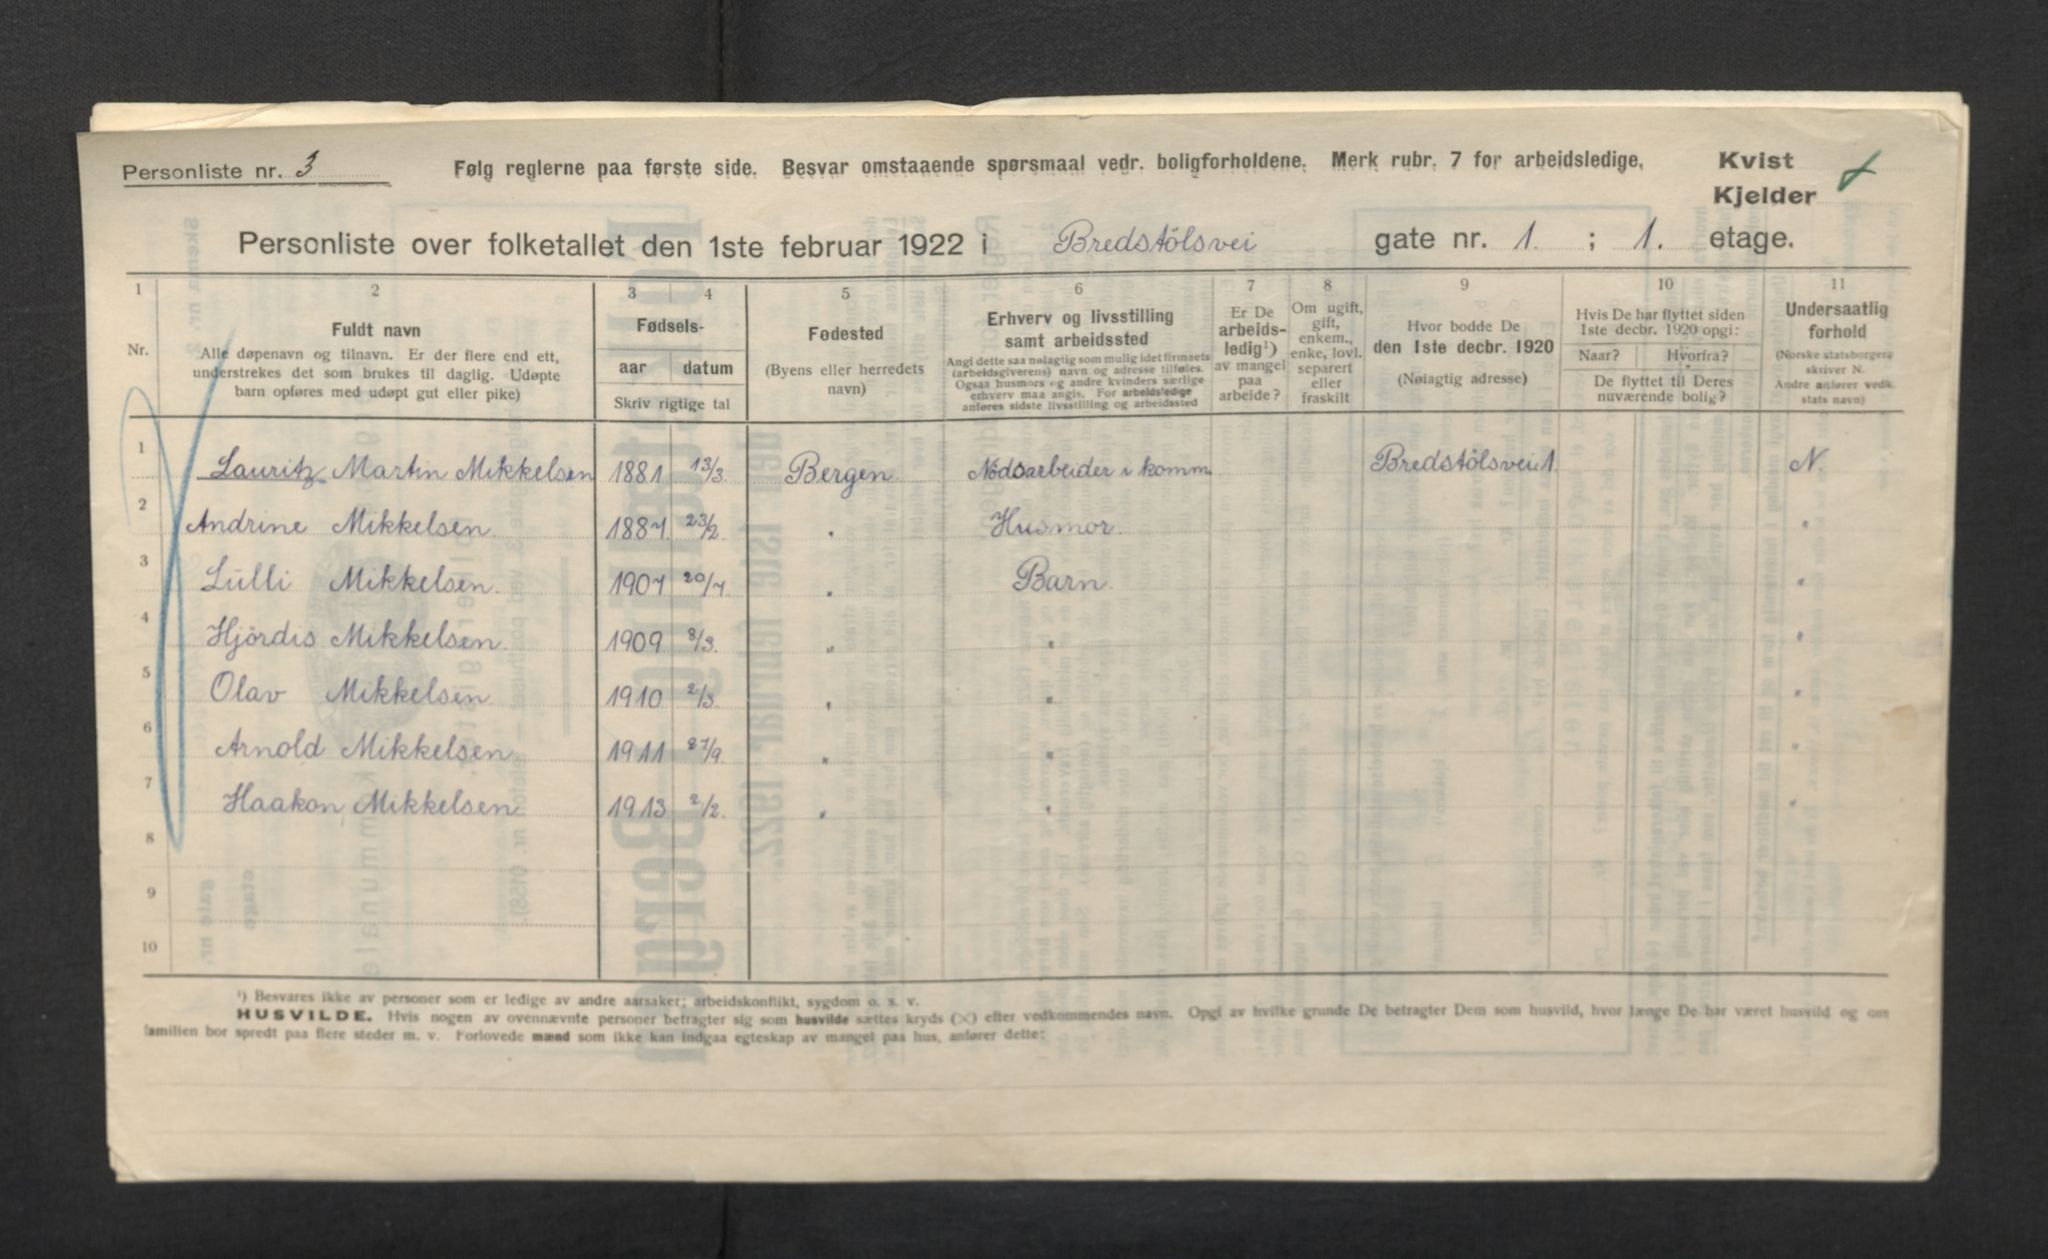 Personliste nr. 3
Følg reglerne paa første side. Besvar omstaaende spørsmaal vedr. boligforholdene. Merk rubr. 7 for arbeidsledige.
Kvist
Kjelder
Personliste over folketallet den 1ste februar 1922 i Bredstölsvei gate nr. 1. ; 1. etage.
1 2 3 4 5 6 7 8 9 10 11
Nr.
Fuldt navn
Alle døpenavn og tilnavn. Er der flere end ett,
understrekes det som brukes til daglig. Udøpte
barn opføres med udøpt gut eller pike)
Fødsels-
aar datum
Skriv rigtige tal
Fødested
(Byens eller herredets
navn)
Erhverv og livsstilling
samt arbeidssted
Angi dette saa nøiagtig som mulig idet firmaets
(arbeidsgiverens) navn og adresse tilføies.
Ogsaa husmors og andre kvinders særlige
erhverv maa angis. For arbeidsledige
anføres sidste livsstilling og arbeidssted
Er De
arbeids-
ledig¹)
av mangel
paa
arbeide?
Om ugift,
gift,
enkem.,
enke, lovl.
separert
eller
fraskilt
Hvor bodde De
den 1ste decbr. 1920
(Nøiagtig adresse)
Hvis De har flyttet siden
1ste decbr. 1920 opgi:
Naar? Hvorfra?
De flyttet til Deres
nuværende bolig?
Undersaatlig
forhold
(Norske statsborgere
skriver N.
Andre anfører vedk.
stats navn)
1 Lauritz Martin Mikkelsen 1881 13/3. Bergen Nödsarbeider i komm. Bredstölsvei 1. N.
2 Andrine Mikkelsen. 1887. 23/2. " Husmor. "
3 Lulli Mikkelsen. 1907 20/7. " Barn. "
4 Hjördis Mikkelsen. 1909 8/3. " " "
5 Olav Mikkelsen. 1910 2/3. " " "
6 Arnold Mikkelsen. 1911 27/9. " " "
7 Haakon Mikkelsen. 1913 2/2. " " "
8
9
10
¹) Besvares ikke av personer som er ledige av andre aarsaker; arbeidskonflikt, sygdom o. s. v.
HUSVILDE. Hvis nogen av ovennævnte personer betragter sig som husvilde sættes kryds (×) efter vedkommendes navn. Opgi av hvilke grunde De betragter Dem som husvild, hvor længe De har været husvild og om
familien bor spredt paa flere steder m. v. Forlovede mænd som ikke kan indgaa egteskap av mangel paa hus, anfører dette: